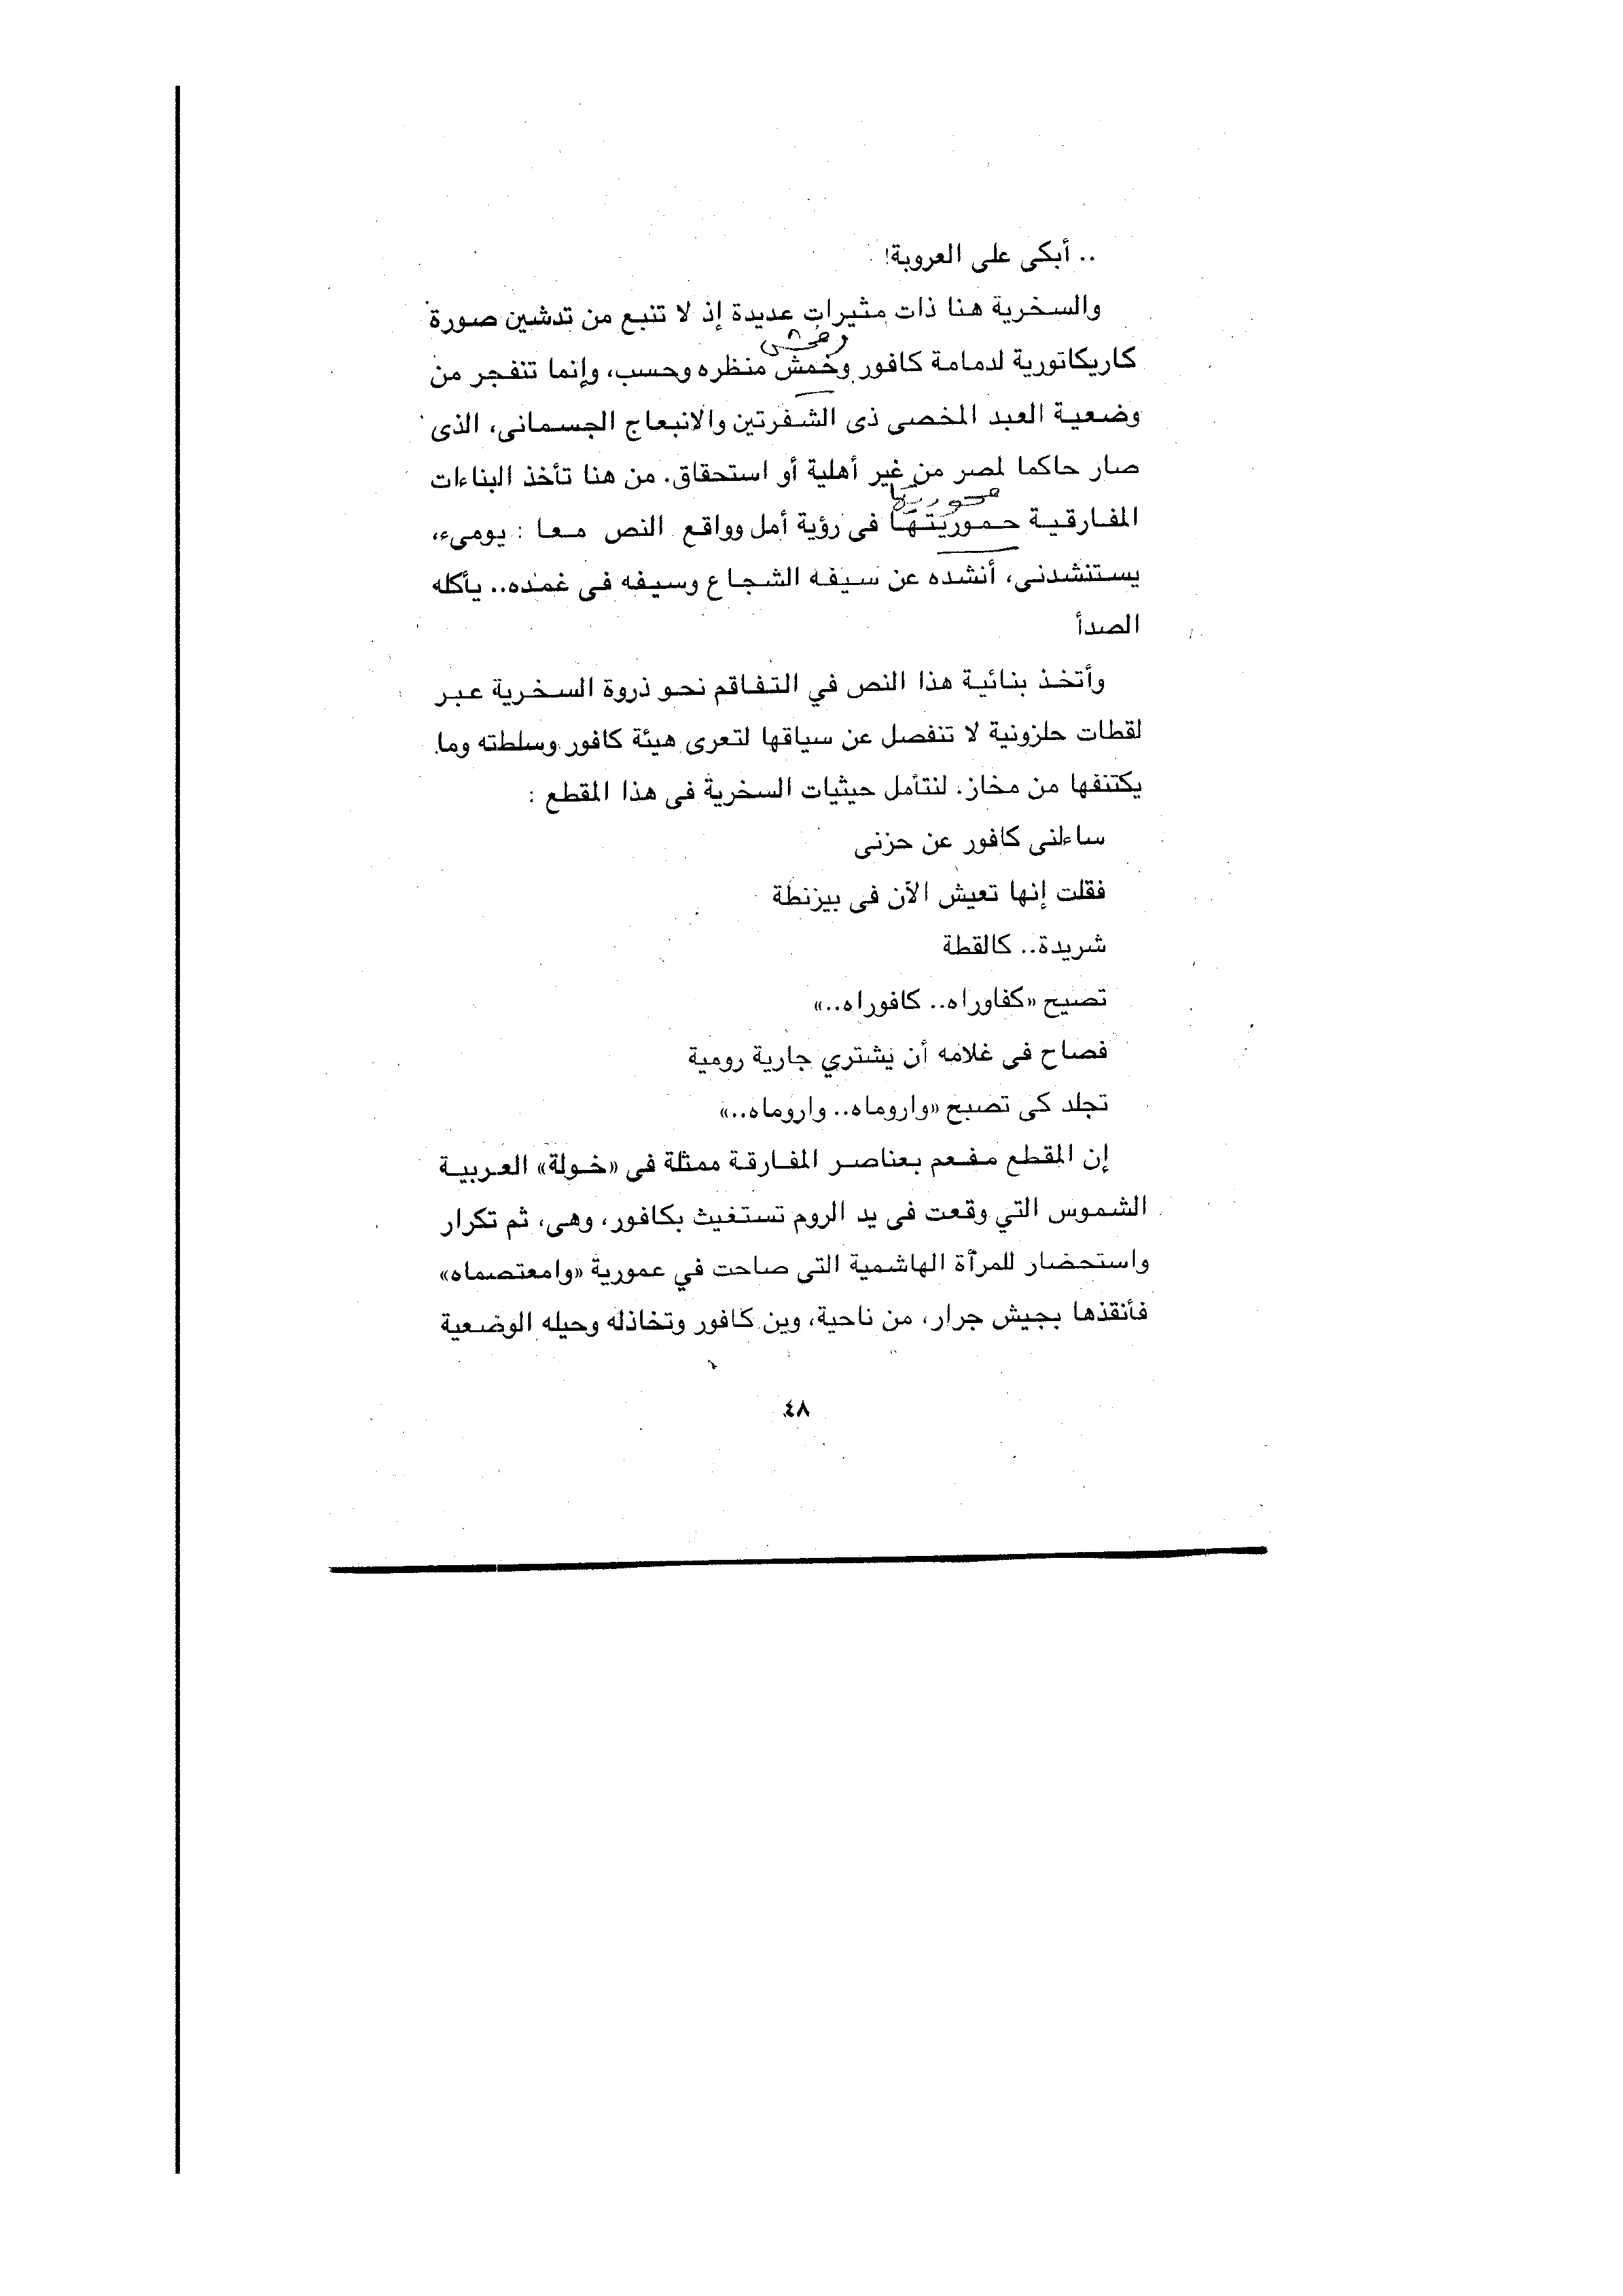 .. أبكى على العروبة!
والسخرية هنا ذات مثيرات عديدة إذ لا تنبع من تدشين صورة
كاريكاتورية لدمامة كافور وخمش منظره وحسب، وإنما تتفجر من
وضعية العبد المخصى ذى الشفرتين والانبعاج الجسمانى، الذى
صار حاكما لمصر من غير أهلية أو استحقاق. من هنا تأخذ البناءات
محوريتها
المفارقية حموريتها فى رؤية أمل وواقع النص معا : يومىء،
يستنشدنى، أنشده عن سيفه الشجاع وسيفه فى غمده.. يأكله
الصدأ
وأتخذ بنائية هذا النص في التفاقم نحو ذروة السخرية عبر
لقطات حلزونية لا تنفصل عن سياقها لتعرى هيئة كافور وسلطته وما
يكتنفها من مخاز. لنتأمل حيثيات السخرية فى هذا المقطع :
ساءلنى كافور عن حزنى
فقلت إنها تعيش الآن فى بيزنطة
شريدة.. كالقطة
تصيح «كفاوراه.. كافوراه..»
فصاح فى غلامه أن يشتري جارية رومية
تجلد كى تصبح «واروماه.. واروماه..»
إن المقطع مفعم بعناصر المفارقة ممثلة فى «خولة» العربية
الشموس التي وقعت فى يد الروم تستغيث بكافور، وهى، ثم تكرار
واستحضار للمرأة الهاشمية التى صاحت في عمورية «وامعتصماه»
فأنقذها بجيش جرار، من ناحية، وين كافور وتخاذله وحيله الوضعية
٤٨